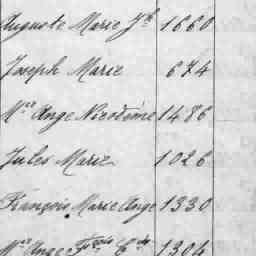 Auguste Marie Jh 1660
Joseph Marie 674
Mie Ange Nicodème 1486
Jules Marie 1026
François Marie Ange 1330
Mie Ange Fçois 1304